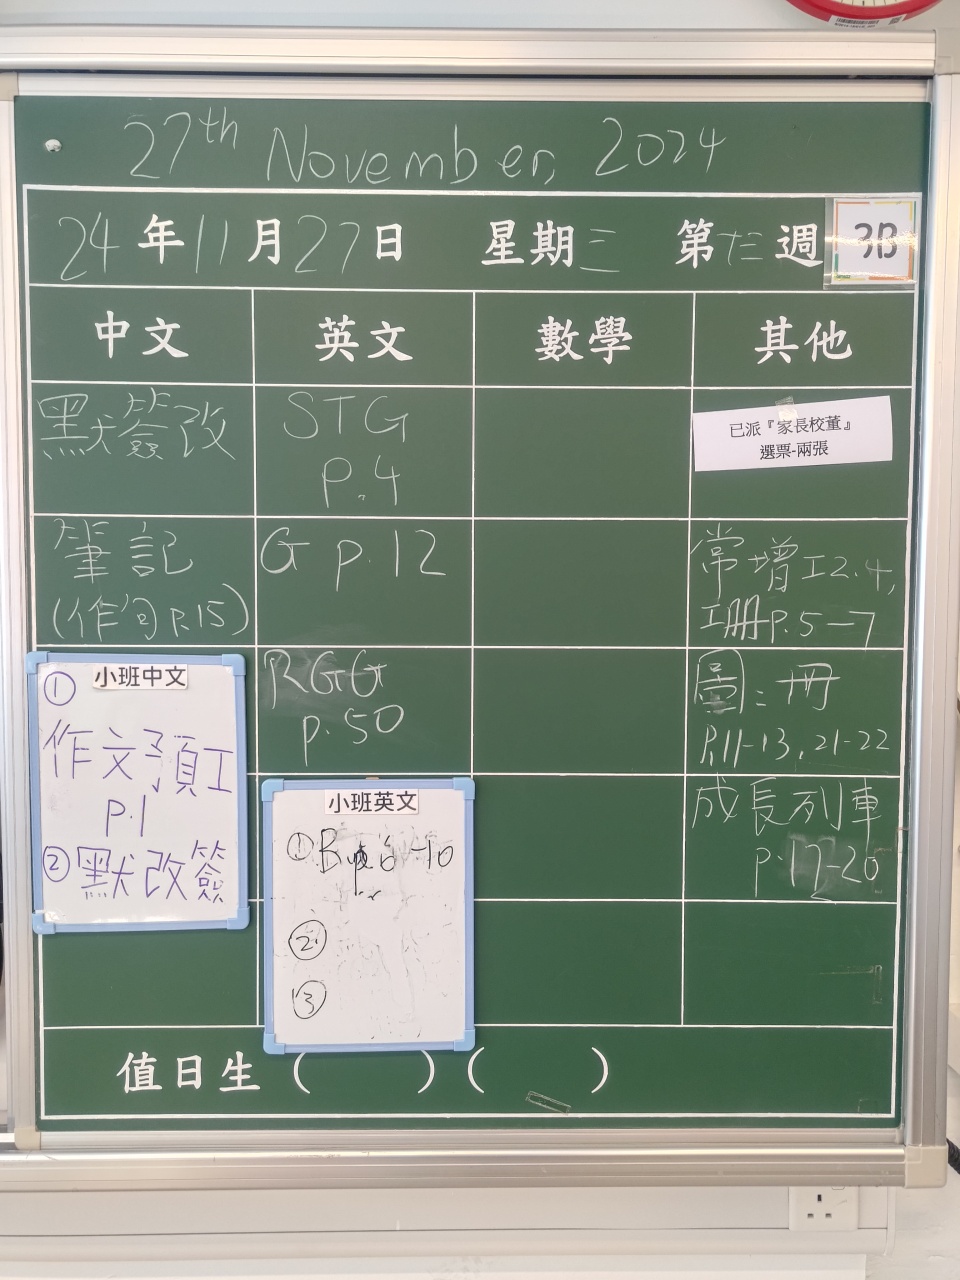 27th November, 2024
24年11月27日 星期三 第十三週 3B
中文 英文 數學 其他
默簽改
STG
p.4
已派『家長校董』
選票-兩張
筆記
(作句 p.15)
G p.12
常增工2.4,
工冊p.5-7
RGG
p.50
圖：冊
p.11-13, 21-22
成長列車
p.17-20
小班中文
①
作文預工
p.1
② 默改簽
小班英文
①
②
③
值日生 ( ) ( )